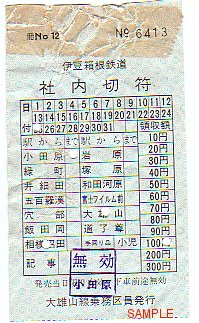 No 12 No 6413
伊豆箱根鉄道
社内切符
日 1 2 3 4 5 6 7 8 9 10 11 12
13 14 15 16 17 18 19 20 21 22 23 24
付 25 26 27 28 29 30 31 領収額
駅から まで 駅から まで 10円
小田原 岩原 20円
緑町 塚原 30円
井細田 和田河原 50円
五百羅漢 富士フイルム前 60円
穴部 大雄山 70円
飯田岡 道了尊 80円
相模沼田 手回り品 小児 90円
100円
記事 無効 200円
300円
発売当日 下車前途無効
小田原
大雄山線乗務区員発行
SAMPLE